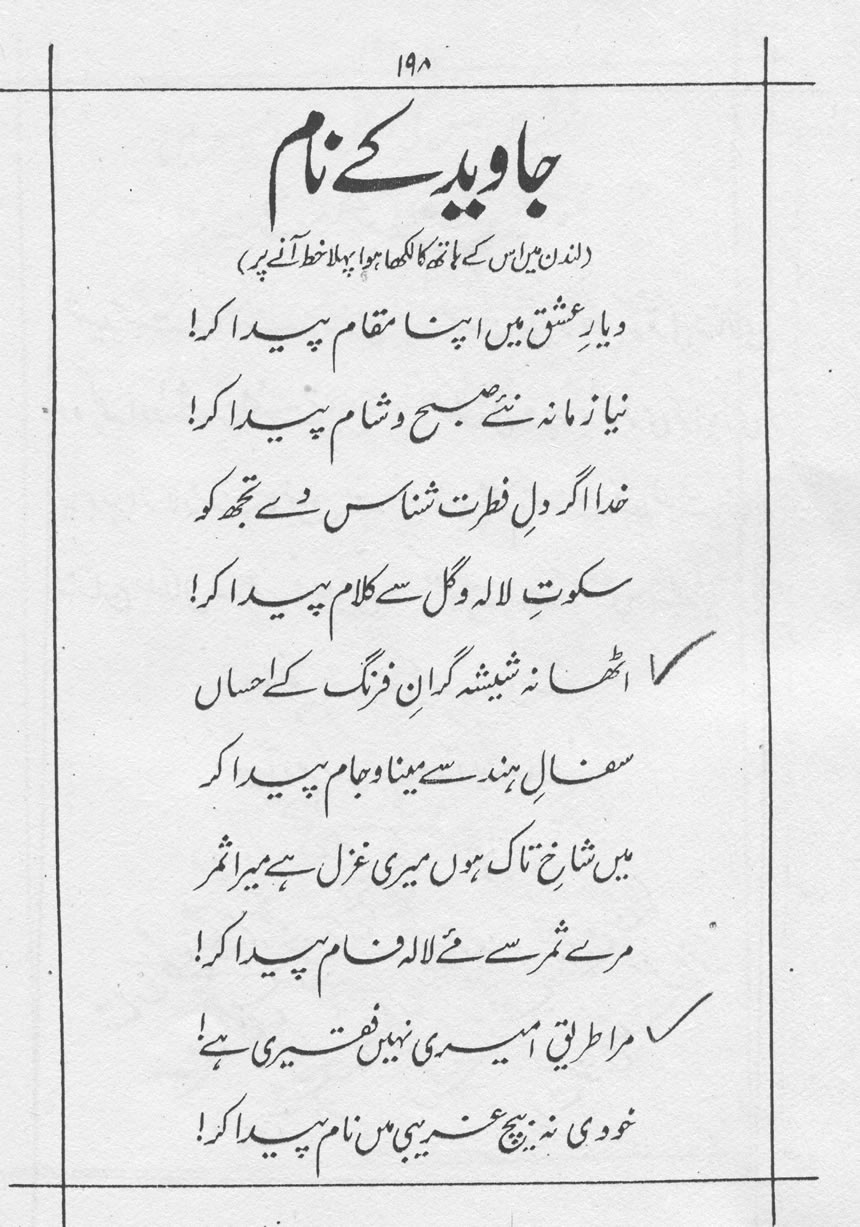 ۱۹۸
جاوید کے نام
(لندن میں اس کے ہاتھ کا لکھا ہوا پہلا خط آنے پر)
دیارِ عشق میں اپنا مقام پیدا کر!
نیا زمانہ نئے صبح و شام پیدا کر!
خدا اگر دلِ فطرت شناس دے تجھ کو
سکوتِ لالہ و گل سے کلام پیدا کر!
اٹھا نہ شیشہ گرانِ فرنگ کے احساں
سفالِ ہند سے مینا و جام پیدا کر
میں شاخِ تاک ہوں میری غزل ہے میرا ثمر
مرے ثمر سے مئے لالہ فام پیدا کر!
مرا طریق امیری نہیں فقیری ہے!
خودی نہ بیچ غریبی میں نام پیدا کر!